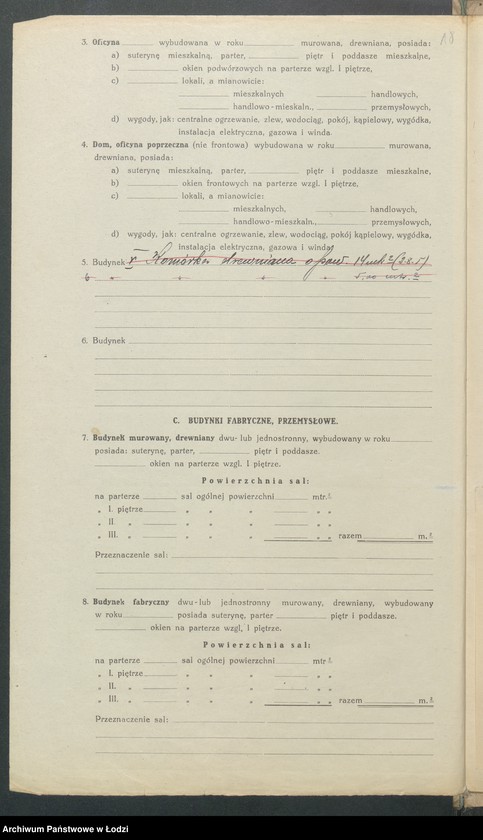 18
3. Oficyna ________ wybudowana w roku ________ murowana, drewniana, posiada:
a) suterynę mieszkalną, parter, ________ piętr i poddasze mieszkalne,
b) ________ okien podwórzowych na parterze wzgl. I piętrze,
c) ________ lokali, a mianowicie:
________ mieszkalnych ________ handlowych,
________ handlowo-mieskaln., ________ przemysłowych,
d) wygody, jak: centralne ogrzewanie, zlew, wodociąg, pokój, kąpielowy, wygódka,
instalacja elektryczna, gazowa i winda.
4. Dom, oficyna poprzeczna (nie frontowa) wybudowana w roku ________ murowana,
drewniana, posiada:
a) suterynę mieszkalną, parter, ________ piętr i poddasze mieszkalne,
b) ________ okien frontowych na parterze wzgl. I piętrze,
c) ________ lokali, a mianowicie:
________ mieszkalnych, ________ handlowych,
________ handlowo-mieskaln., ________ przemysłowych,
d) wygody, jak: centralne ogrzewanie, zlew, wodociąg, pokój kąpielowy, wygódka,
instalacja elektryczna, gazowa i winda
5. Budynek Komórka drewniana o pow. 14
6 " " " "
6. Budynek
C. BUDYNKI FABRYCZNE, PRZEMYSŁOWE.
7. Budynek murowany, drewniany dwu- lub jednostronny, wybudowany w roku ________
posiada: suterynę, parter, ________ piętr i poddasze.
________ okien na parterze wzgl. I piętrze.
Powierzchnia sal:
na parterze ________ sal ogólnej powierzchni ________ mtr.²
„ I. piętrze ________ „ „ „ ________ „ „
„ II. „ ________ „ „ „ ________ „ „
„ III. „ ________ „ „ „ ________ „ „ razem ________ m.²
Przeznaczenie sal:
8. Budynek fabryczny dwu-lub jednostronny murowany, drewniany, wybudowany
w roku ________ posiada suterynę, parter ________ piętr i poddasze.
________ okien na parterze wzgl. I piętrze.
Powierzchnia sal:
na parterze ________ sal ogólnej powierzchni ________ mtr.²
„ I. piętrze ________ „ „ „ ________ „ „
„ II. „ ________ „ „ „ ________ „ „
„ III. „ ________ „ „ „ ________ „ „ razem ________ m.²
Przeznaczenie sal:
Archiwum Państwowe w Łodzi